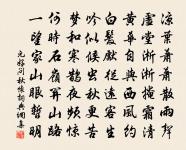 涼葉蕭蕭散雨聲
虛堂淅淅掩霜清
黃華自與西風約
白髮先從遠客生
吟似候蟲秋更苦
夢和寒鵲夜頻驚
何時石嶺關山路
一望家山眼暫明
元好問秋懷詞典網集